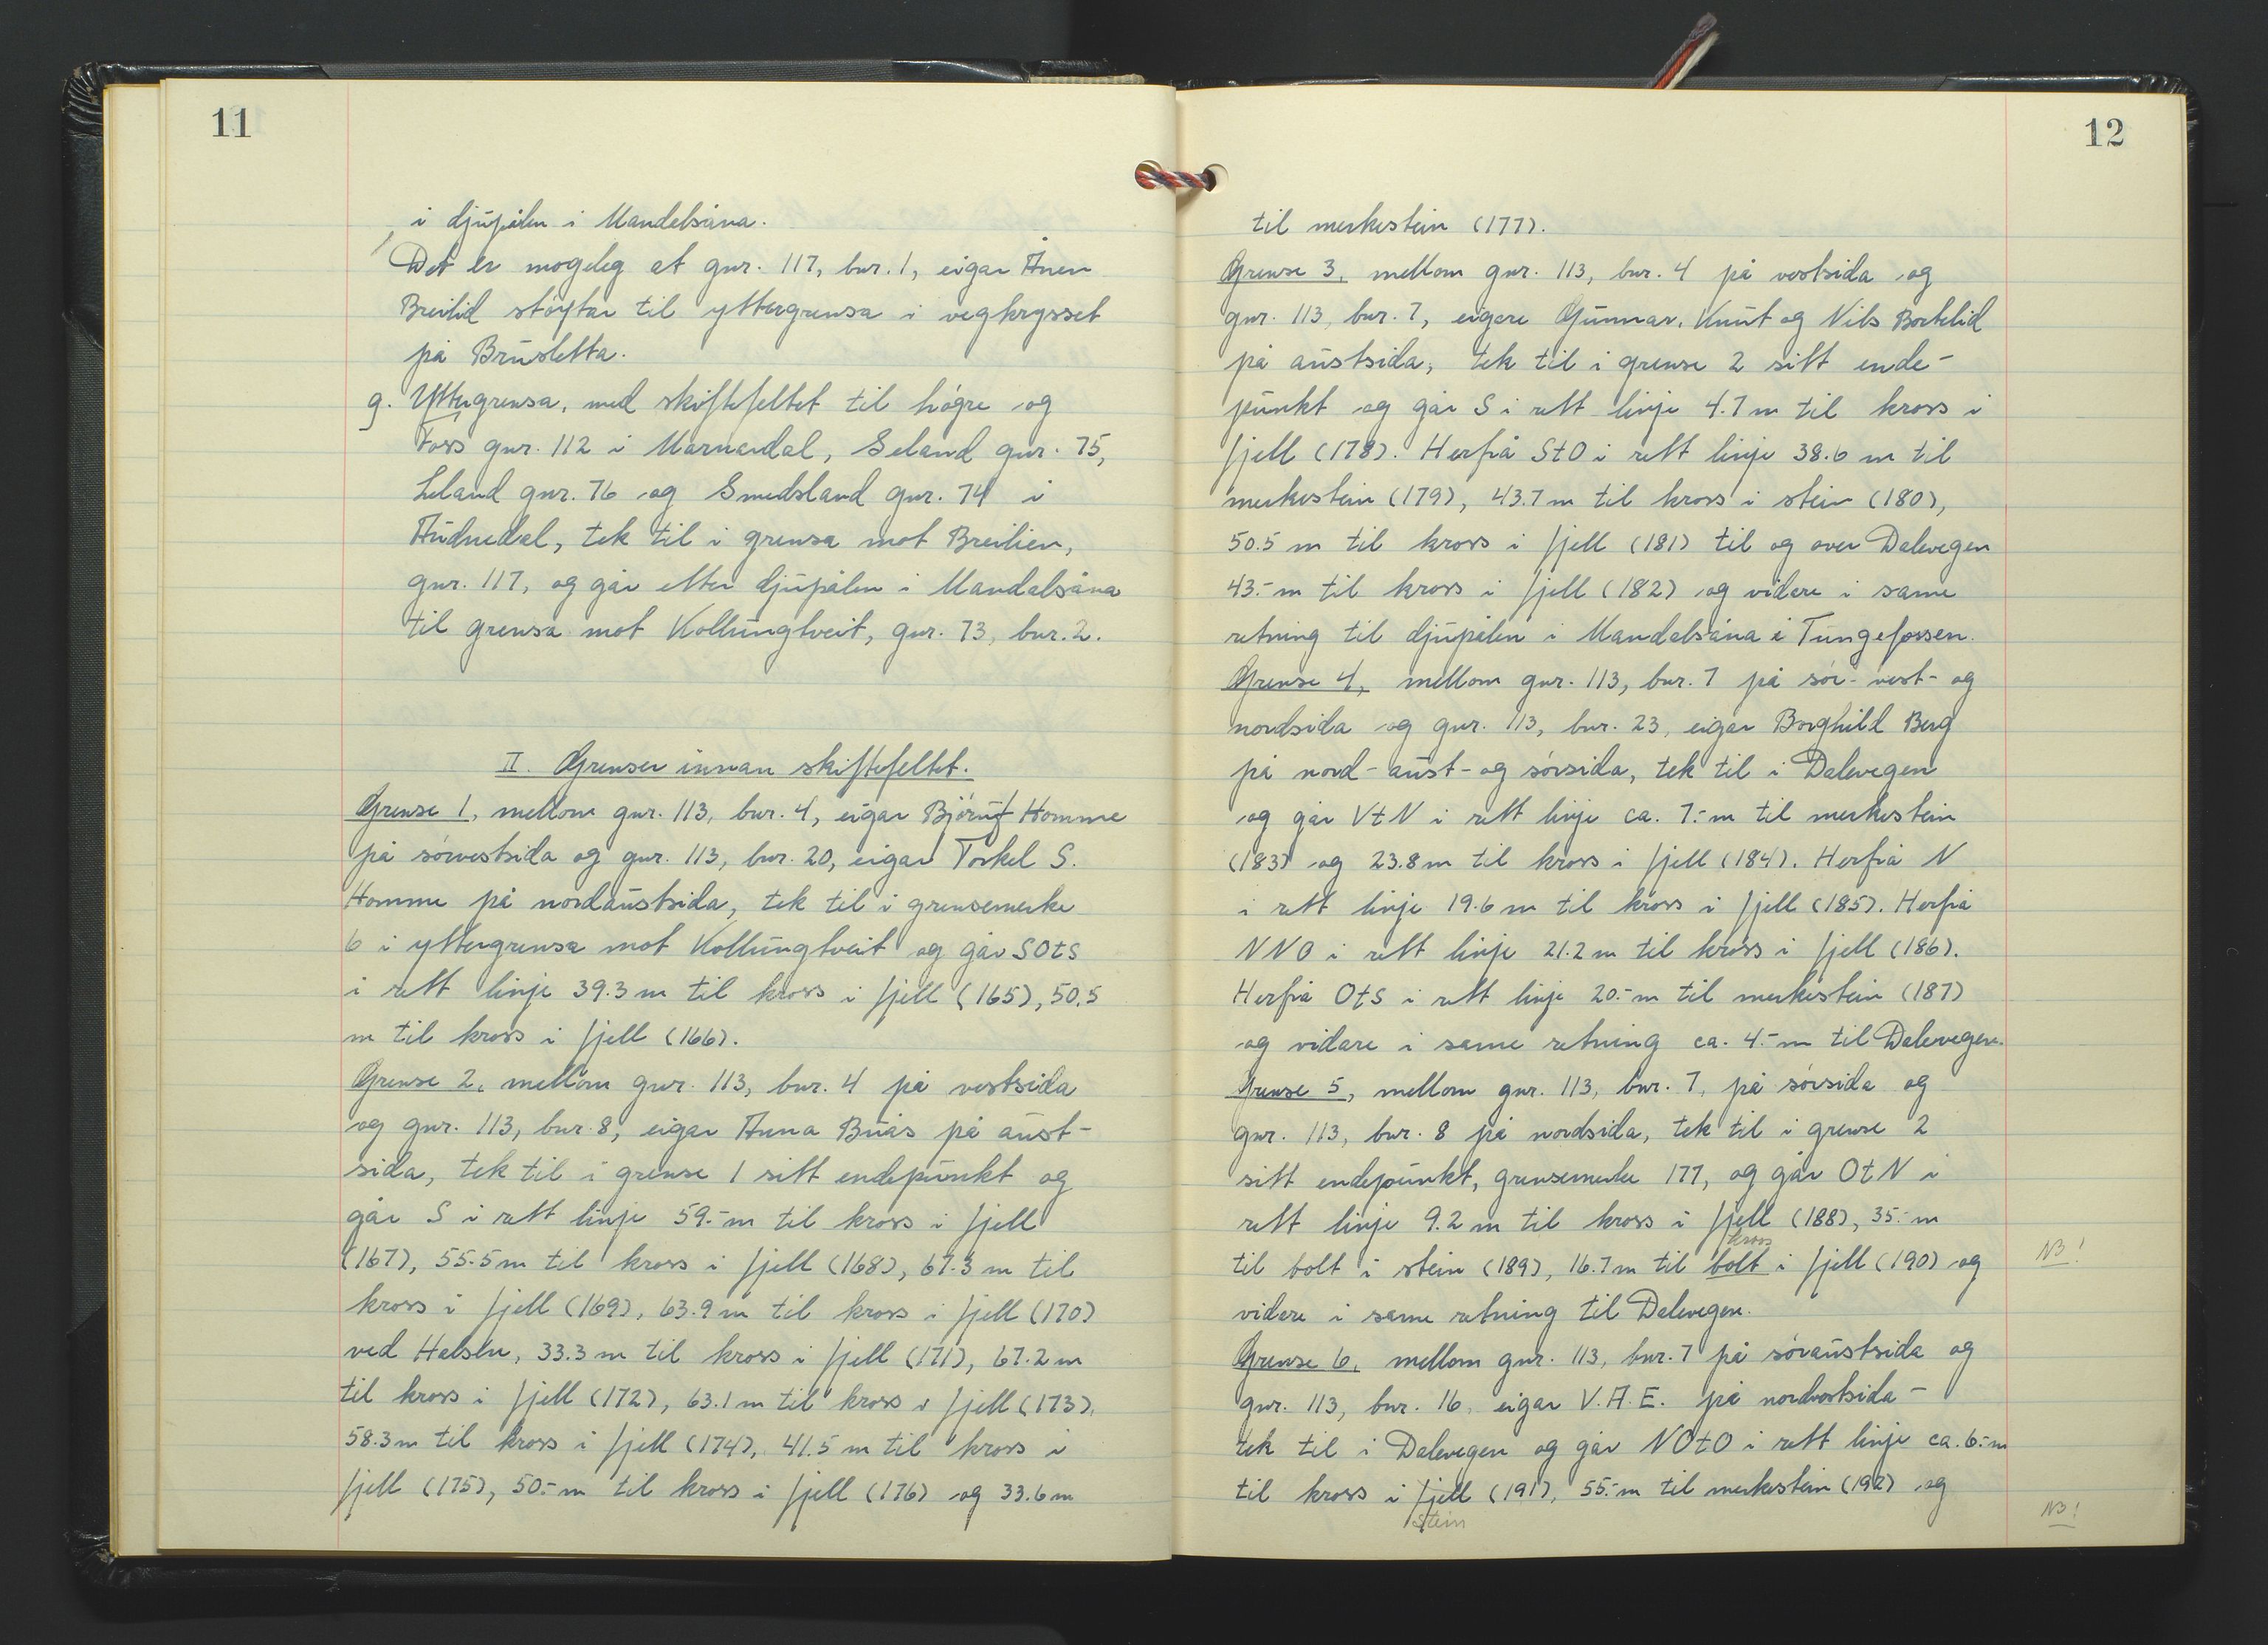 11
i djupålen i Mandelsåna.
Det er mogeleg at gnr. 117, bnr. 1, eigar Ånen
Breilid støytar til yttergrensa i vegkrysset
på Brusletta.
g. Yttergrensa, med skiftefeltet til høgre og
Foss gnr. 112 i Marnardal, Seland gnr. 75,
Leland gnr. 76 og Smedsland gnr. 74 i
Audnedal, tek til i grensa mot Breilien,
gnr. 117, og går etter djupålen i Mandalsåna
til grensa mot Kollungtveit, gnr. 73, bnr. 2.
II. Grenser innan skiftefeltet.
Grense 1, mellom gnr. 113, bnr. 4, eigar Bjørulf Homme
på sørvestsida og gnr. 113, bnr. 20, eigar Torkel S.
Homme på nordaustsida, tek til i grensemerke
6 i yttergrensa mot Kollungtveit og går SOtS
i rett linje 39.3 m til kross i fjell (165), 50.5
m til kross i fjell (166).
Grense 2, mellom gnr. 113, bnr. 4 på vestsida
og gnr. 113, bnr. 8, eigar Anna Buås på aust-
sida, tek til i grense 1 sitt endepunkt og
går S i rett linje 59.- m til kross i fjell
(167), 55.5 m til kross i fjell (168), 67.3 m til
kross i fjell (169), 63.9 m til kross i fjell (170)
ved Halsen, 33.3 m til kross i fjell (171), 67.2 m
til kross i fjell (172), 63.1 m til kross i fjell (173),
58.3 m til kross i fjell (174), 41.5 m til kross i
fjell (175), 50.- m til kross i fjell (176) og 33.6 m
12
til merkestein (177).
Grense 3, mellom gnr. 113, bnr. 4 på vestsida og
gnr. 113, bnr. 7, eigare Gunnar, Knut og Nils Bortelid
på austsida, tek til i grense 2 sitt ende-
punkt og går S i rett linje 4.7 m til kross i
fjell (178). Herfrå StO i rett linje 38.6 m til
merkestein (179), 43.7 m til kross i stein (180),
50.5 m til kross i fjell (181) til og over Dalevegen
43.- m til kross i fjell (182) og vidare i same
retning til djupålen i Mandalsåna i Tungefossen.
Grense 4, mellom gnr. 113, bnr. 7 på sør- vest- og
nordsida og gnr. 113, bnr. 23, eigar Borghild Berg
på nord- aust- og sørsida, tek til i Dalevegen
og går VtN i rett linje ca. 7.- m til merkestein
(183) og 23.8 m til kross i fjell (184). Herfrå N
i rett linje 19.6 m til kross i fjell (185). Herfrå
NNO i rett linje 21.2 m til kross i fjell (186).
Herfrå OtS i rett linje 20.- m til merkestein (187)
og vidare i same retning ca. 4.- m til Dalevegen.
Grense 5, mellom gnr. 113, bnr. 7, på sørsida og
gnr. 113, bnr. 8 på nordsida, tek til i grense 2
sitt endepunkt, grensemerke 177, og går OtN i
rett linje 9.2 m til kross i fjell (188), 35.- m
kross
til bolt i stein (189), 16.7 m til bolt i fjell (190) og NB!
vidare i same retning til Dalevegen.
Grense 6, mellom gnr. 113, bnr. 7 på søraustsida og
gnr. 113, bnr. 16, eigar V.A.E. på nordvestsida -
tek til i Dalevegen og går NOtO i rett linje ca. 6.- m
til kross i fjell (191), 55.- m til merkestein (192) og
stein NB!